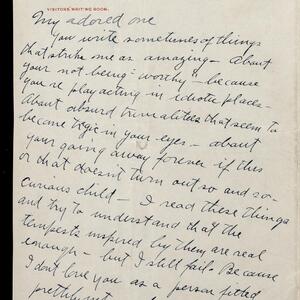 VISITORS' WRITING ROOM.
My adored one
You write sometimes of things
that strike me as amazing - about
your not being "worthy" - because
you're play acting in idiotic places -
About absurd trivialities that seem to
become tragic in your eyes - about
your going away forever if this
or that doesn't turn out so and so -
curious child - I read these things
and try to understand that the
tempests inspired by them are real
enough - but I still fail. Because
I don't love you as a person
prettily